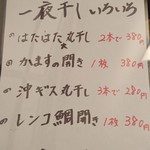 一夜干しいろいろ
はたはた丸干し 2本で380円
かますの開き 1枚 380円
沖ギス丸干し 3本で 280円
レンコ鯛開き 1枚 380円